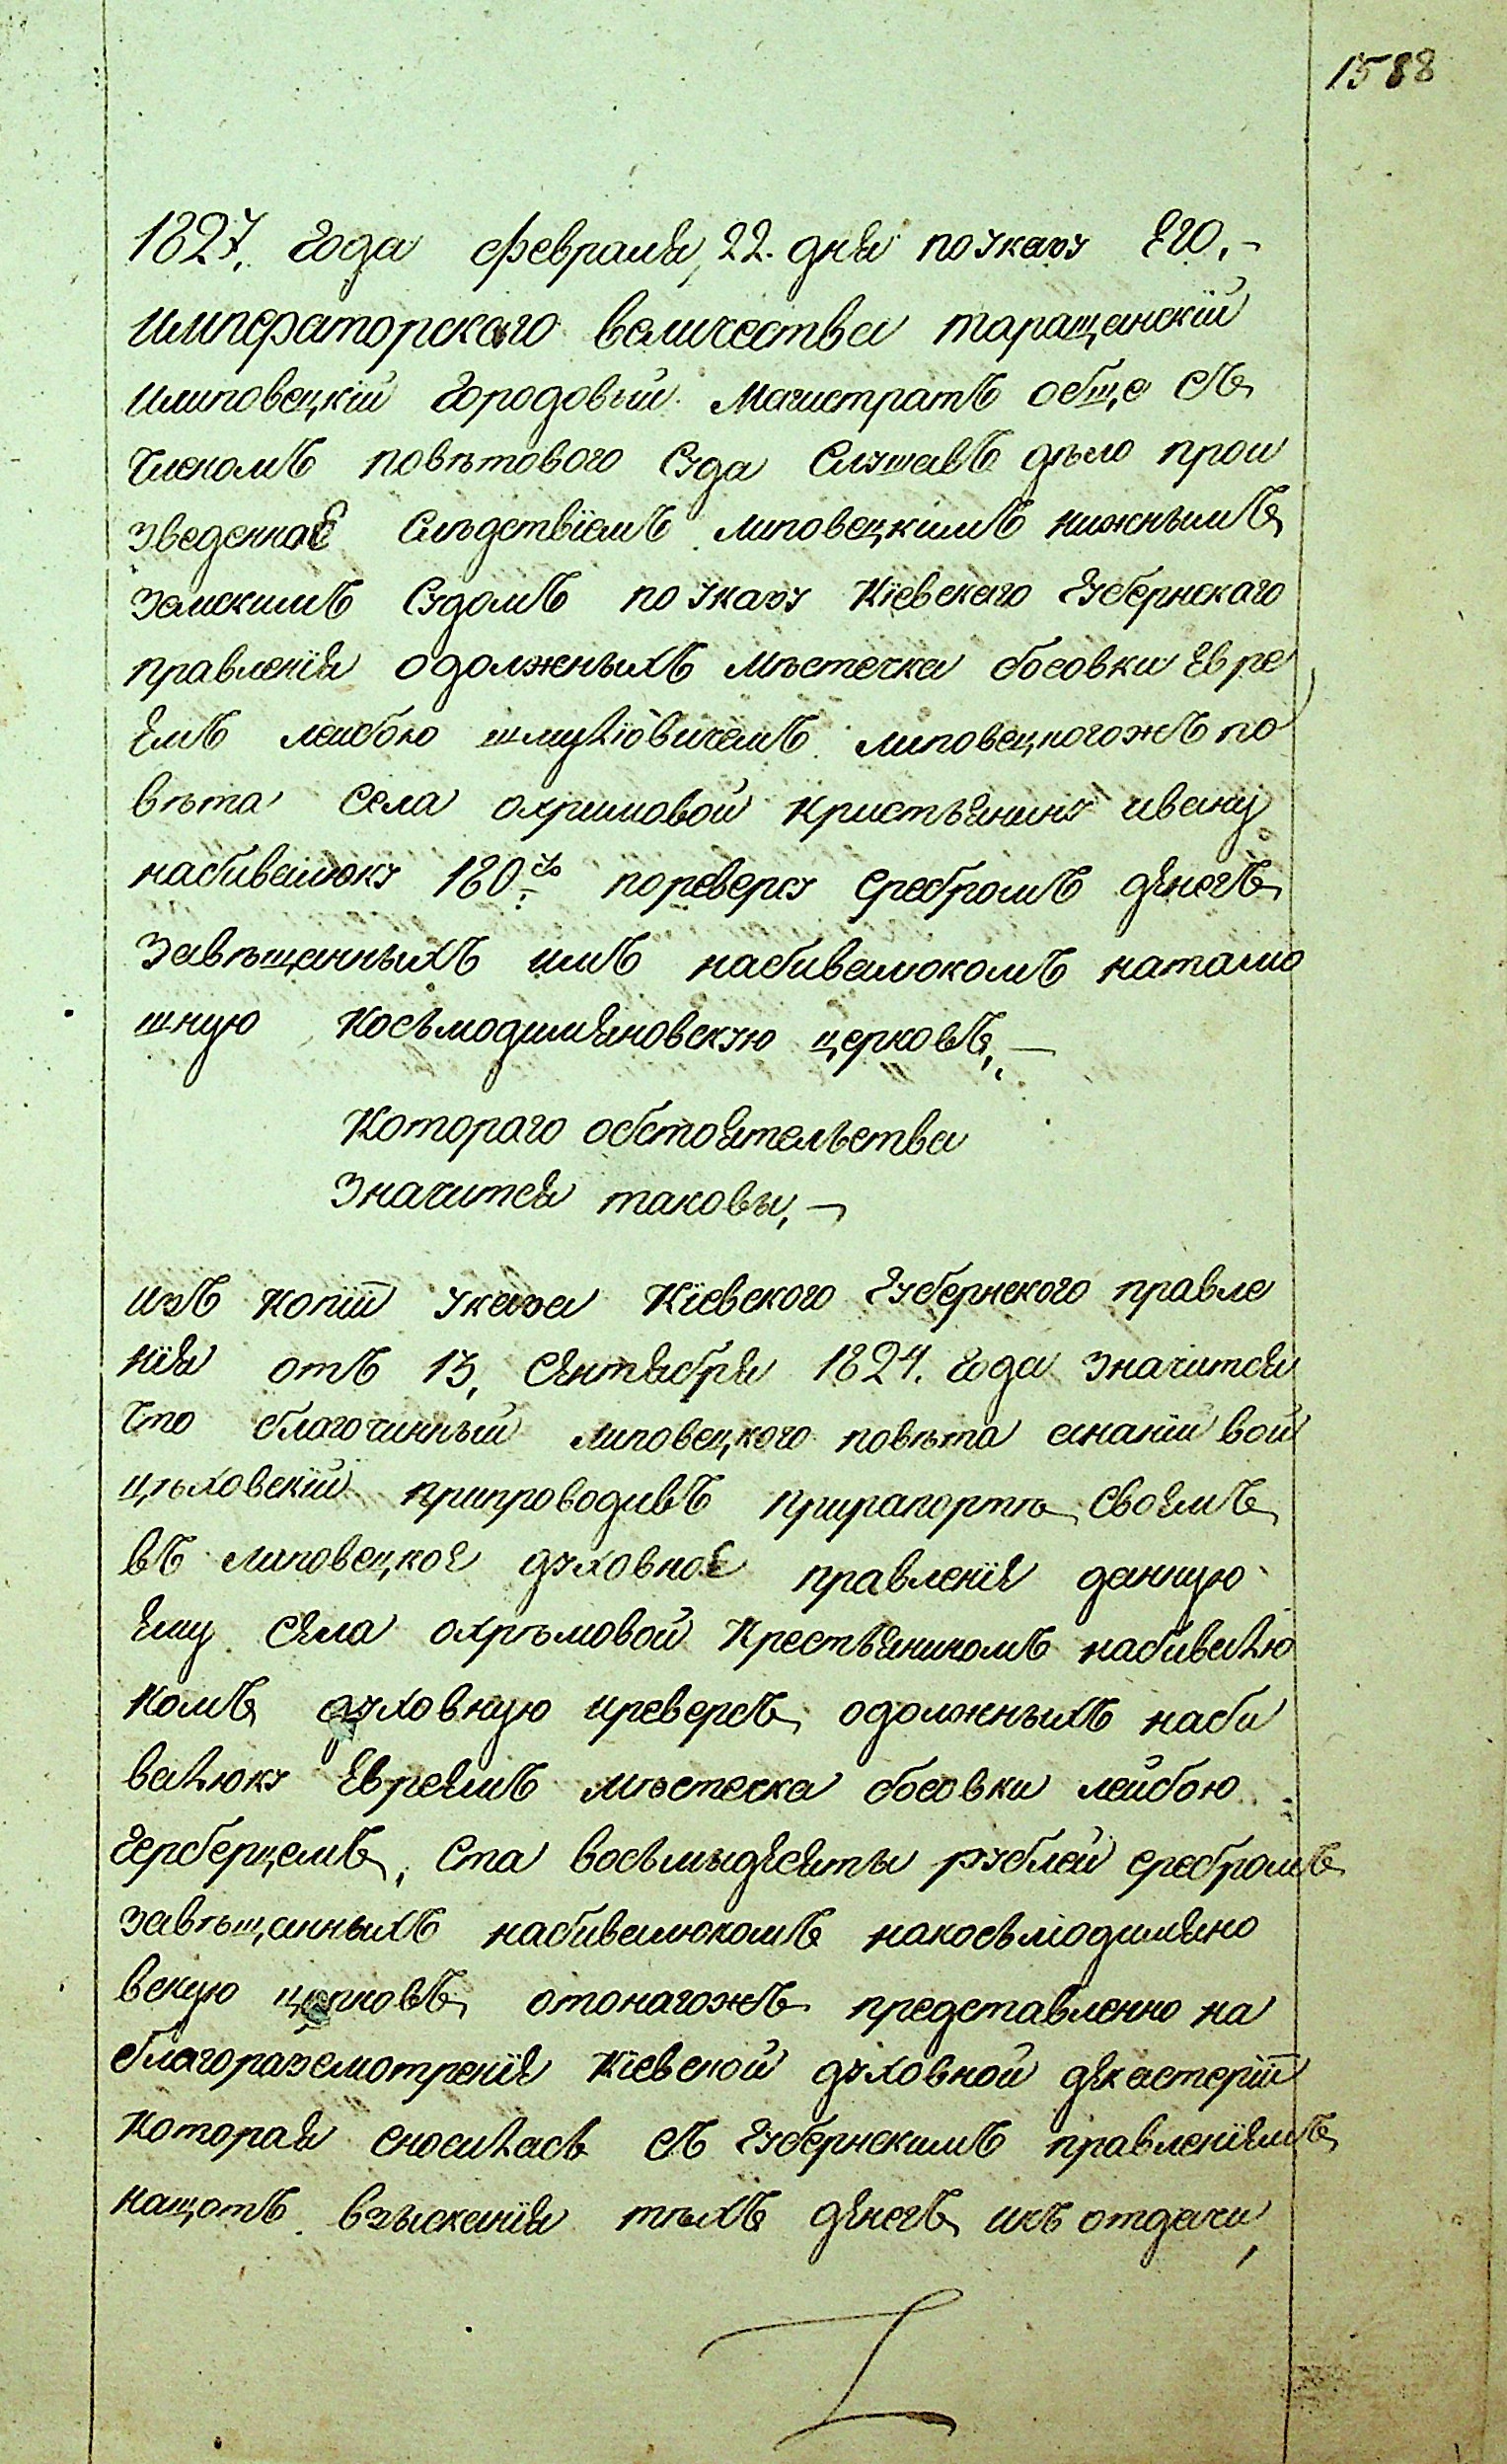 1588
1827. года февраля, 22. дня поуказу Его.-
императорскаго величества таращанскій
илиповецкій городовый Магистратъ обще съ
членомъ повѣтового Суда Слушавъ дѣло прои
зведенное Слѣдствіемъ липовецкимъ нижнымъ
земскимъ Судомъ поуказу Кіевскаго Губернскаго
правленія одолжныхъ мѣстечка босовки Евре
емъ лейбою шмуліовичемъ липовецкогожъ по
вѣта Села охримовой Кристьянину ивану
набивалюку 180 пореверсу сребромъ денегъ
завѣщанныхъ имъ набивалюкомъ натамо
шную Косьмодиміяновскую церковь,. —
Котораго обстоятельства
Значится таковы, —
изъ копіи указа Кіевского Губернского правле
нія отъ 13, Сентября 1824. года значится
что благочинный липовецкого повѣта ананій вой
цѣховскій припроводивъ прирапортѣ своемъ
въ липовецкое духовное правленіе данную
ему села охрѣмовой Крестьяниномъ набивалю
комъ духовную иреверсъ, одолжныхъ наби
валюку Евреемъ мѣстечка босовки лейбою
герберцемъ, Ста восьмыдесяты рублей сребромъ
завѣщанныхъ набивалюкомъ накосьмодиміяно
вскую церковь, отонагожъ представленно на
благоразсмотреніе Кіевской духовной декастеріи
Которая сносилась съ Губернскимъ правленіемъ
нащотъ взысканія тѣхъ денегъ, икъ отдачи,